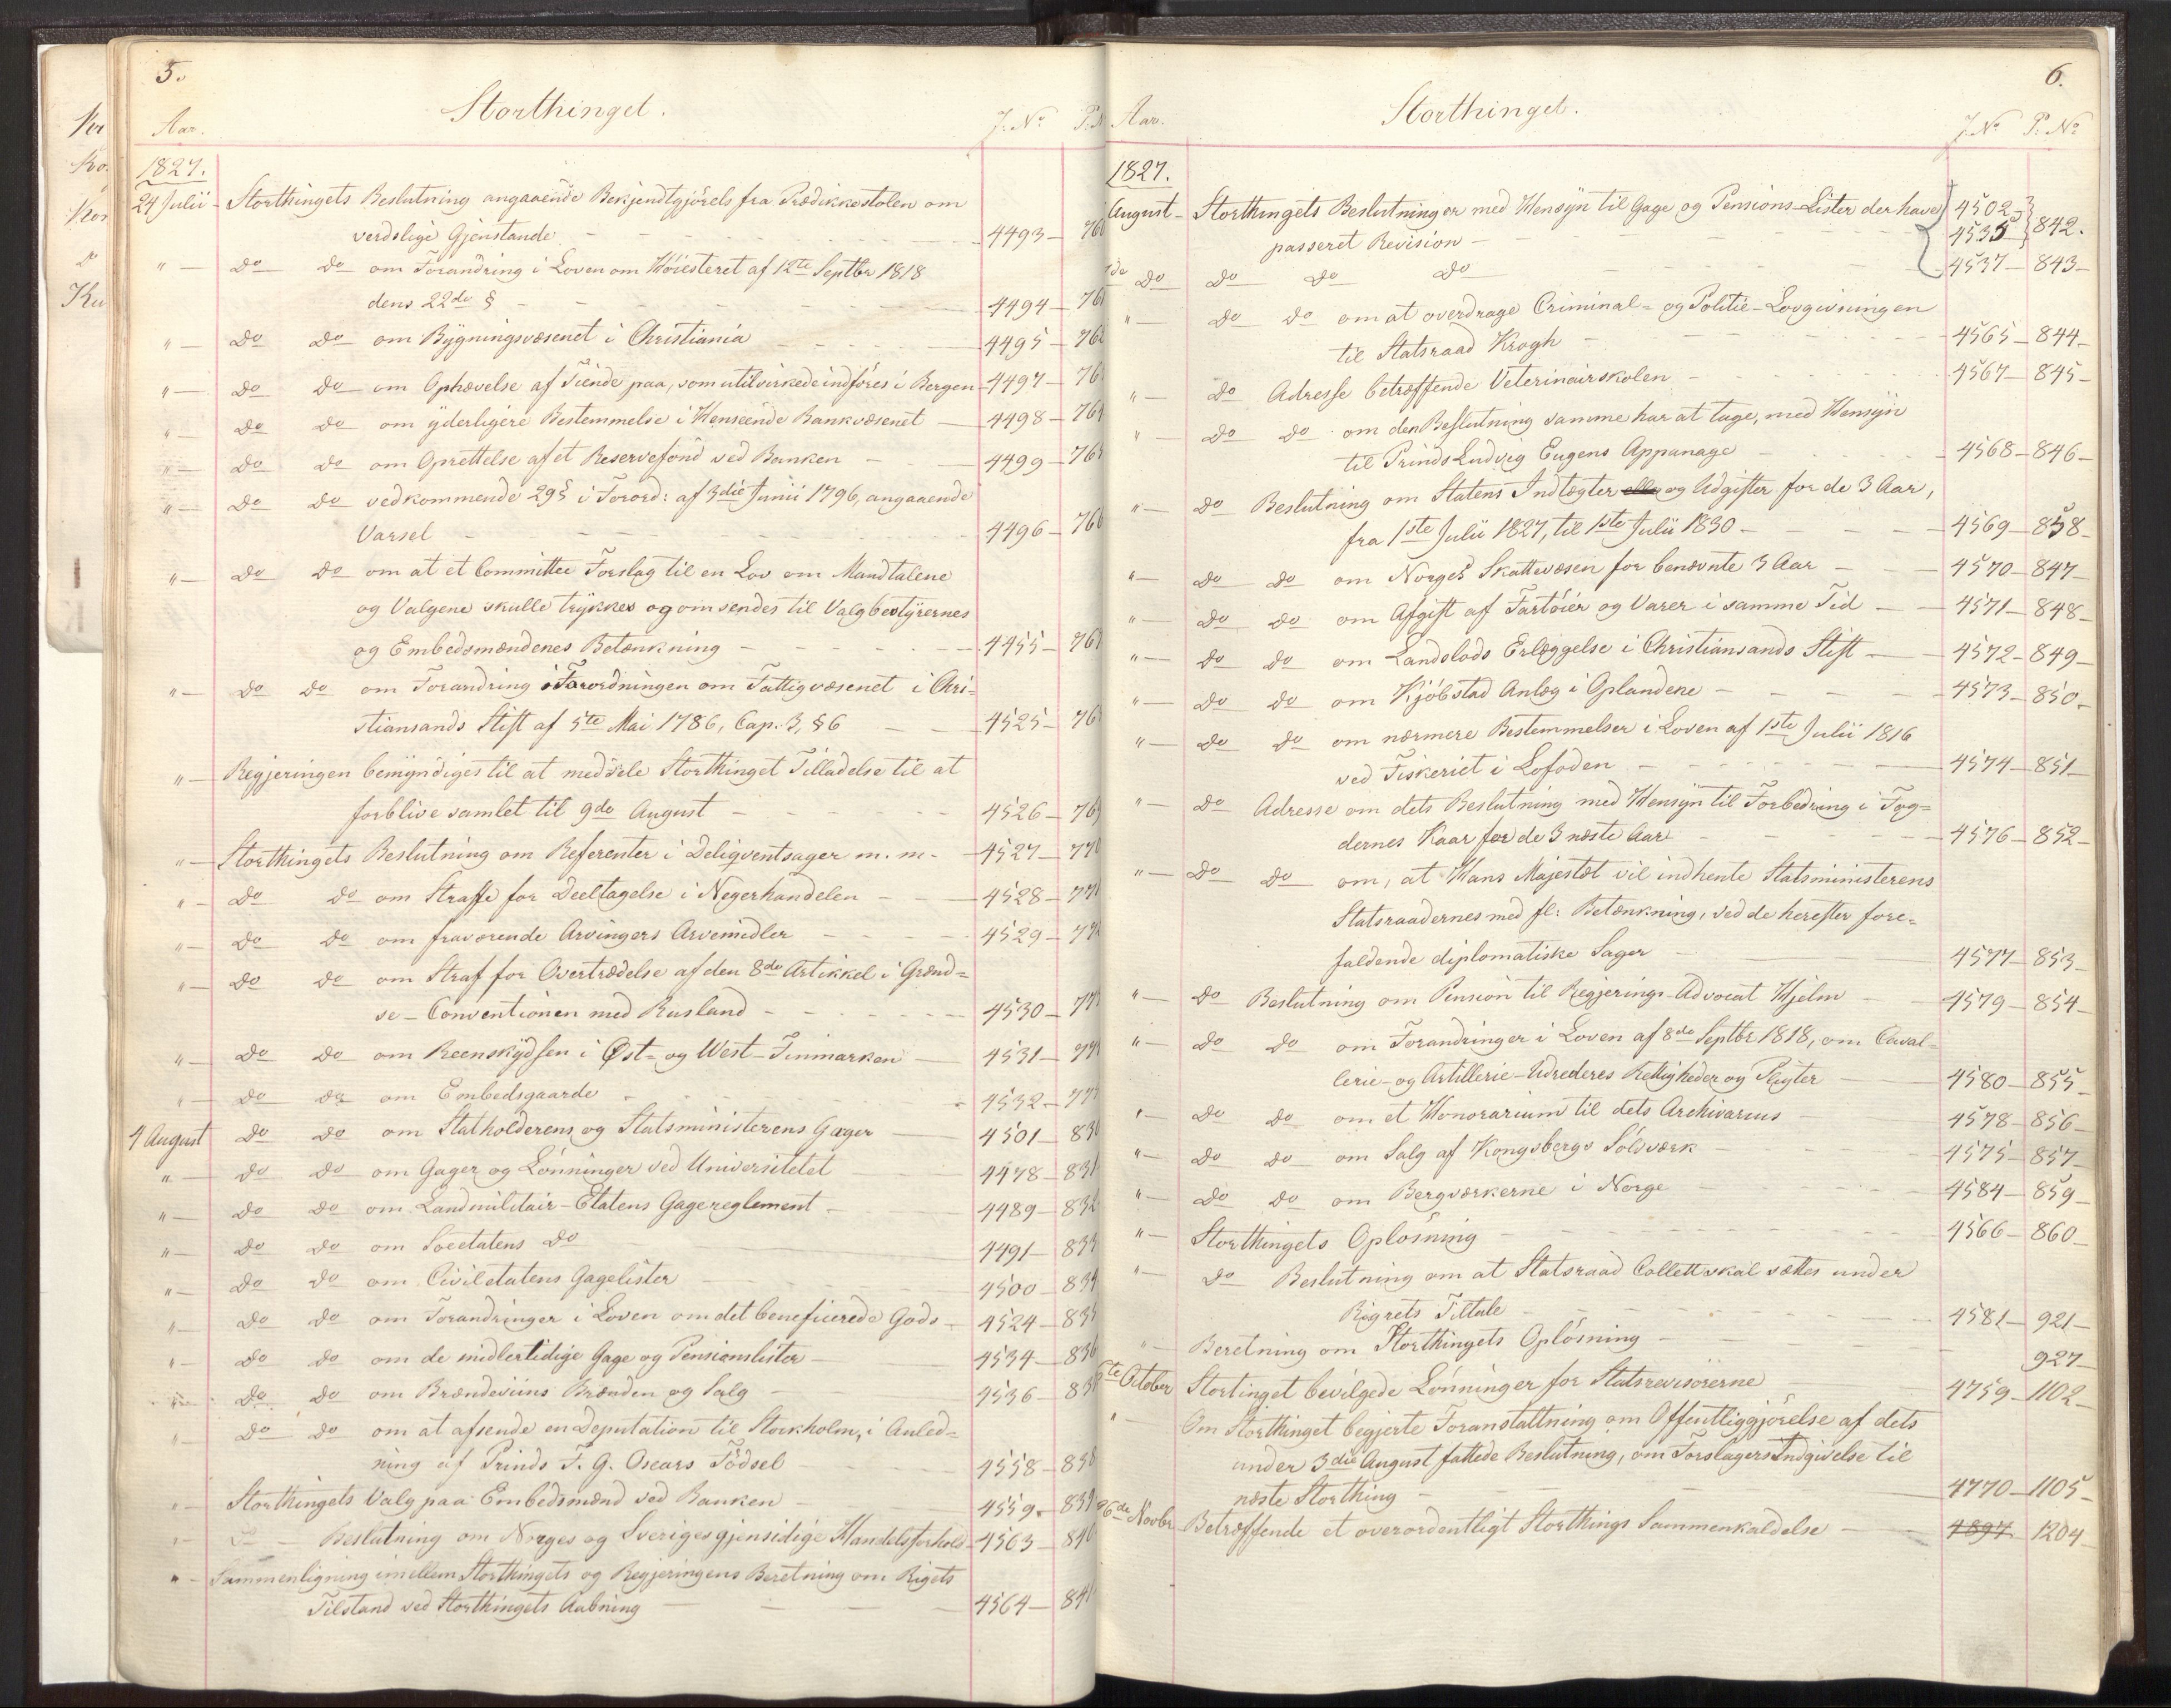 5.
Storthinget.
Aar. J. No P. N
1827.
24 Julii - Storthingets Beslutning angaaende Bekjendtgjörels fra Prædikkestolen om
verdslige Gjenstande - 4493 - 76
" - Do Do om Forandring i Loven om Höiesteret af 12te Septbr 1818
dens 22de § - 4494 - 76
" - Do Do om Bygningsvæsenet i Christiania - 4495 - 76
" - Do Do om Ophævelse af Tiende paa, som utilvirkede indföres i Bergen - 4497 - 76
" - Do Do om yderligere Bestemmelse i Henseende Bankvæsenet - 4498 - 764
" - Do Do om Oprettelse af et Reservefond ved Banken - 4499 - 765
" - Do Do vedkommende 29§ i Forord: af 3die Junii 1796, angaaende
Varsel - 4496 - 766
" - Do Do om at et Committee Forslag til en Lov om Mandtalene
og Valgene skulle trykkes og omsendes til Valgbestyrernes
og Embedsmændenes Betænkning - 4455 - 76
" - Do Do om Forandring i Forordningen om Fattigvæsenet i Chri=
stiansands Stift af 5te Mai 1786, Cap. 3, § 6 - 4525 - 76
" - Regjeringen bemyndiges til at meddele Storthinget Tilladelse til at
forblive samlet til 9de August - 4526 - 769
" - Storthingets Beslutning om Referenter i Deliqventsager m. m. - 4527 - 770
" - Do Do om Straffe for Deeltagelse i Negerhandelen - 4528 - 77
" - Do Do om fraværende Arvingers Arvemidler - 4529 - 77
" - Do Do om Straf for Overtrædelse af den 8de Artikkel i Grænd=
se-Conventionen med Rusland - 4530 - 77
" - Do Do om Reenskydsen i Øst= og West-Finmarken - 4531 - 77
" - Do Do om Embedsgaarde - 4532 - 77
4 August Do Do om Statholderens og Statsministerens Gager - 4501 - 830
" - Do Do om Gager og Lönninger ved Universitetet 4478 - 831
" - Do Do om Landmilitair-Etatens Gagereglement - 4489 - 832
" - Do Do om Söeetatens Do 4491 - 833
" - Do Do om Civiletatens Gagelister - 4500 - 834
" - Do Do om Forandringer i Loven om det beneficerede Gods - 4524 - 835
" - Do Do om de midlertidige Gage og Pensionslister - 4534 - 836
" - Do Do om Brændeviins Brænden og Salg - 4536 - 83
" - Do Do om at afsende en Deputation til Stockholm, i Anled=
ning af Prinds F. G. Oscars Födsel - 4558 - 838
" - Storthingets Valg paa Embedsmænd ved Banken - 4559 - 839
" - Do - Beslutning om Norges og Sveriges gjensidige Handelsforhold - 4563 - 840
" - Sammenligning imellem Storthingets og Regjeringens Beretning om Rigets
Tilstand ved Storthingets Aabning - 4564 - 841
6.
Storthinget.
Aar. J. No P. No
1827.
August - Storthingets Beslutninger med Hensyn til Gage og Pensions-Lister der have 4502
passeret Revision - 4535 842.
Do Do Do Do - 4537 - 843 -
" - Do Do om at overdrage Criminal= og Politie-Lovgivningen
til Statsraad Krogh - 4565 - 844 -
" - Do Adresse betræffende Veterinairskolen - 4567 - 845 -
" - Do Do om den Beslutning samme har at tage, med Hensyn
til Prinds Ludvig Eugens Appanage - 4568 - 846 -
" - Do Beslutning om Statens Indtægter og Udgifter for de 3 Aar,
fra 1ste Julii 1827, til 1ste Julii 1830 - 4569 - 858 -
" - Do Do om Norges Skattevæsen for benævnte 3 Aar - 4570 - 847 -
" - Do Do om Afgift af Fartöier og Varer i samme Tid - 4571 - 848 -
" - Do Do om Landslods Erlæggelse i Christiansands Stift - 4572 - 849 -
" - Do Do om Kjöbstad Anlæg i Oplandene - 4573 - 850 -
" - Do Do om nærmere Bestemmelser i Loven af 1ste Julii 1816
ved Fiskeriet i Lofoden - 4574 - 851 -
" - Do Adresse om dets Beslutning med Hensyn til Forbedring i Fog=
dernes Kaar for de 3 næste Aar - 4576 - 852 -
" - Do Do om, at Hans Majestæt vil indhente Statsministerens
Statsraadernes med fl: Betænkning, ved de herefter fore=
faldende diplomatiske Sager - 4577 - 853 -
" - Do Beslutning om Pension til Regjerings-Advocat Hjelm - 4579 - 854 -
" - Do Do om Forandringer i Loven af 8de Septbr 1818, om Caval=
lerie- og Artillerie-Udrederes Rettigheder og Pligter - 4580 - 855 -
" - Do Do om et Honorarium til dets Archivarius - 4578 - 856 -
" - Do Do om Salg af Kongsbergs Sölvværk - 4575 - 857 -
" - Do Do om Bergværkerne i Norge - 4584 - 859 -
" - Storthingets Oplösning - 4566 - 860 -
" - Do Beslutning om at Statsraad Collett skal sættes under
Rigrets Tiltale - 4581 - 921 -
" - Beretning om Storthingets Oplösning - 927 -
te October Stortinget bevilgede Lönninger for Statsrevisörerne 4759 - 1102 -
" - Om Storthinget begjerte Foranstaltning om Offentliggjörelse af dets
under 3die August fattede Beslutning, om Forslagers Indgivelse til
næste Storthing - 4770 - 1105 -
26de Novbr Betræffende et overordentligt Storthings Sammenkaldelse - 4897 - 1204 -